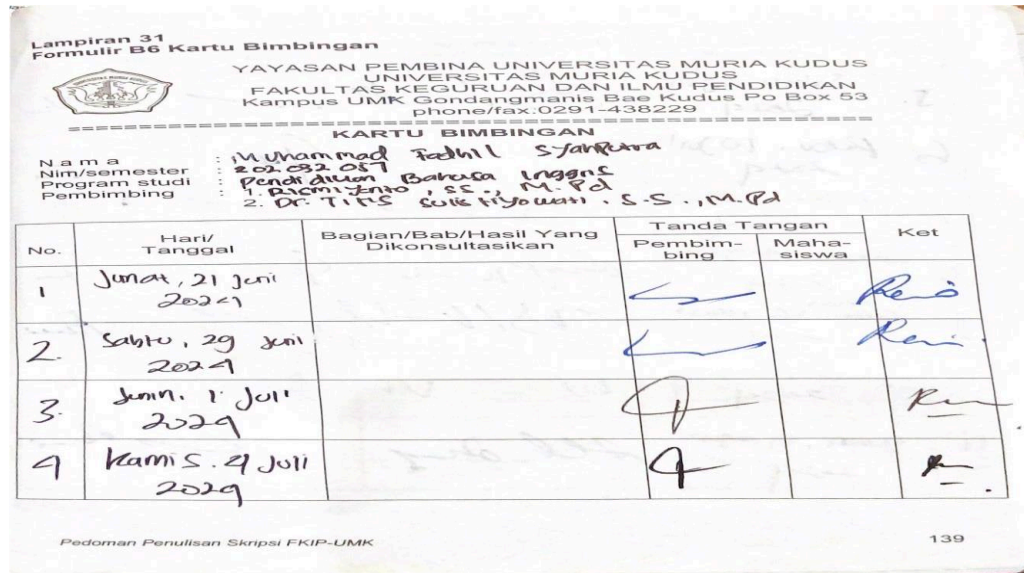 Lampiran 31
Formulir B6 Kartu Bimbingan
YAYASAN PEMBINA UNIVERSITAS MURIA KUDUS
UNIVERSITAS MURIA KUDUS
FAKULTAS KEGURUAN DAN ILMU PENDIDIKAN
Kampus UMK Gondangmanis Bae Kudus Po Box 53
phone/fax:0291-438229
KARTU BIMBINGAN
Nama : Muhammad Fadhil Syahputra
Nim/semester : 202032057
Program studi : Pendidikan Bahasa Inggris
Pembimbing : 1. Rismiyanto, SS., M.Pd
2. Dr. Titis Sulistiyowati, S.S., M.Pd
No. Hari/Tanggal Bagian/Bab/Hasil Yang Dikonsultasikan Tanda Tangan Pembimbing Mahasiswa Ket
1 Jumat, 21 Juni 2024
2. Sabtu, 29 Juni 2024
3. Senin, 1 Juli 2024
4 Kamis, 4 Juli 2024
Pedoman Penulisan Skripsi FKIP-UMK 139